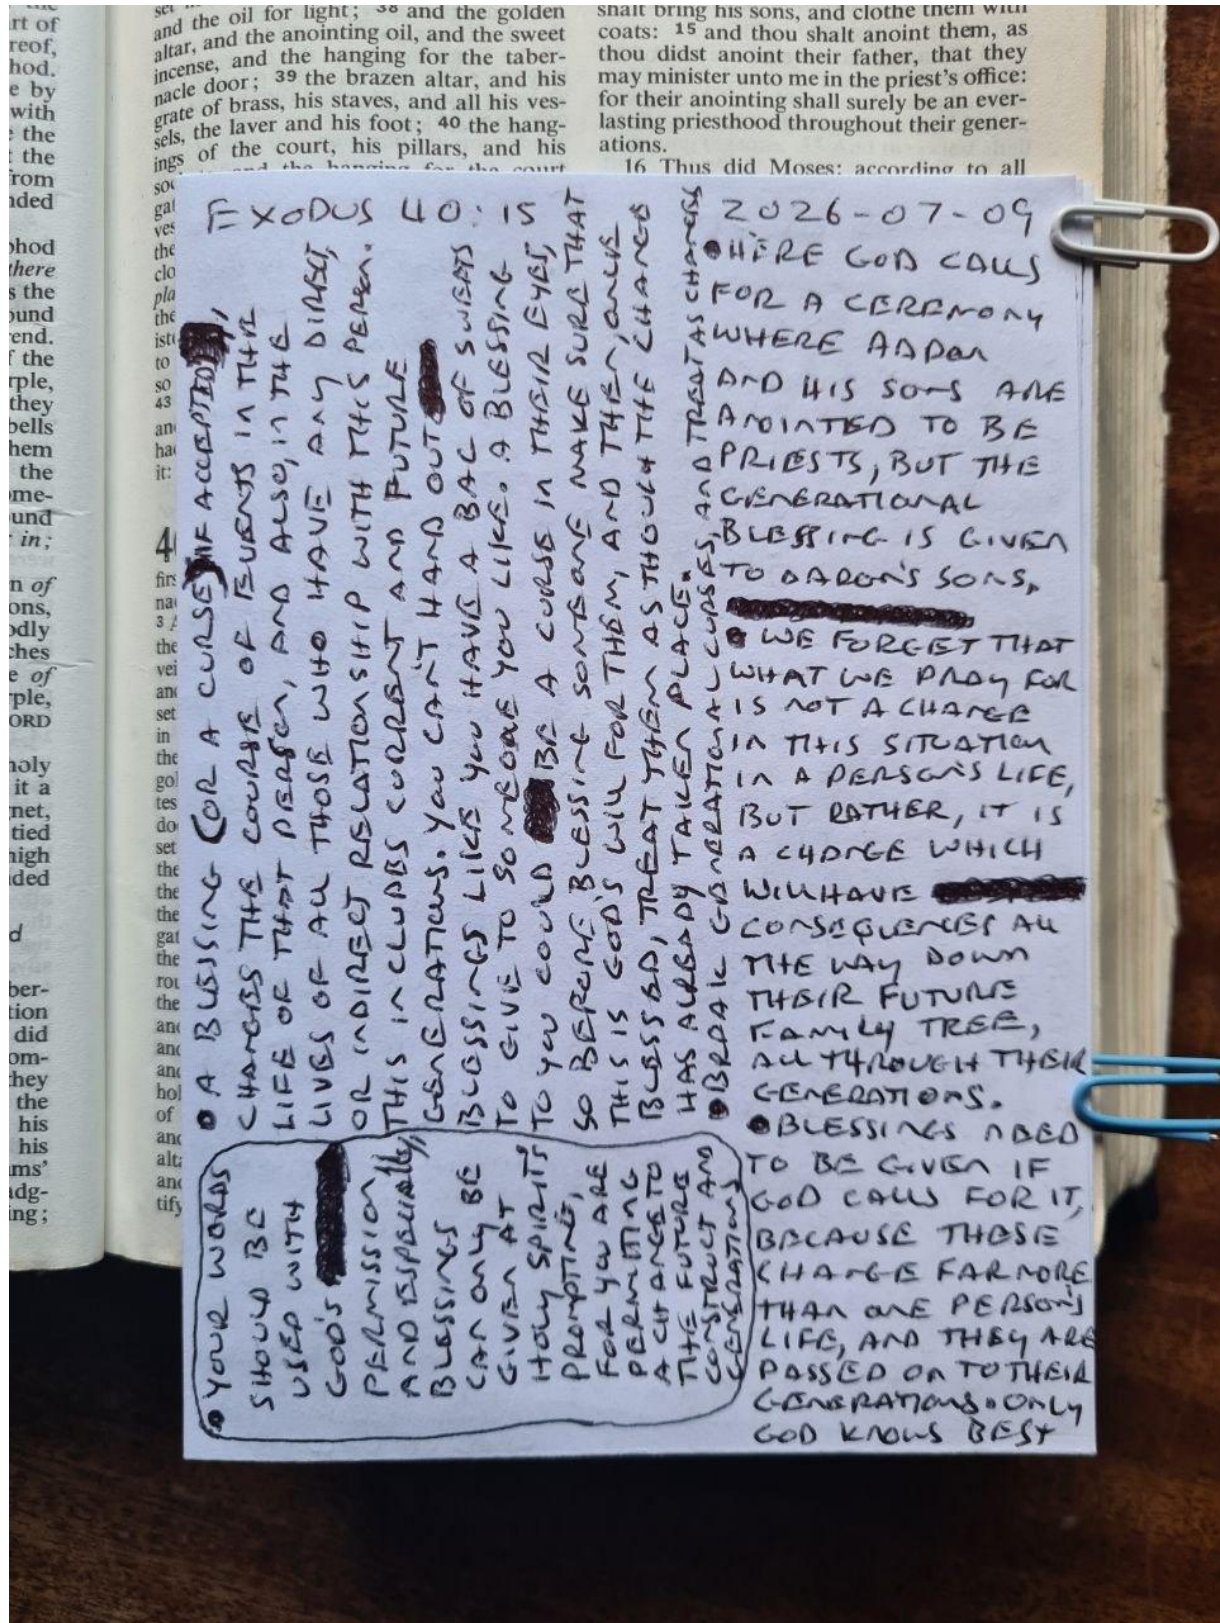 rt of
reof,
hod.
e by
with
the
the
from
nded
phod
there
s the
ound
rend.
f the
rple,
they
bells
hem
the
ome-
ound
in;
n of
ons,
odly
ches
e of
ple,
ORD
holy
it a
gnet,
tied
high
ided
d
ber-
tion
did
om-
they
the
his
his
ams'
udg-
ing;
and the oil for light; 38 and the golden
altar, and the anointing oil, and the sweet
incense, and the hanging for the taber-
nacle door; 39 the brazen altar, and his
grate of brass, his staves, and all his ves-
sels, the laver and his foot; 40 the hang-
ings of the court, his pillars, and his
and the hanging for the court
shalt bring his sons, and clothe them with
coats: 15 and thou shalt anoint them, as
thou didst anoint their father, that they
may minister unto me in the priest's office:
for their anointing shall surely be an ever-
lasting priesthood throughout their gener-
ations.
16 Thus did Moses: according to all
EXODUS 40:15
2026-07-09
• HERE GOD CALLS
FOR A CEREMONY
WHERE AARON
AND HIS SONS ARE
ANOINTED TO BE
PRIESTS, BUT THE
GENERATIONAL
BLESSING IS GIVEN
TO AARON'S SONS.
• WE FORGET THAT
WHAT WE PRAY FOR
IS NOT A CHANGE
IN THIS SITUATION
IN A PERSON'S LIFE,
BUT RATHER, IT IS
A CHANGE WHICH
WILL HAVE
CONSEQUENCES ALL
THE WAY DOWN
THEIR FUTURE
FAMILY TREE,
ALL THROUGH THEIR
GENERATIONS.
• BLESSINGS NEED
TO BE GIVEN IF
GOD CALLS FOR IT,
BECAUSE THESE
CHANGE FAR MORE
THAN ONE PERSON'S
LIFE, AND THEY ARE
PASSED ON TO THEIR
GENERATIONS. ONLY
GOD KNOWS BEST
• A BLESSING (OR A CURSE) IF ACCEPTED,
CHANGES THE COURSE OF EVENTS IN THE
LIFE OF THAT PERSON, AND ALSO, IN THE
LIVES OF ALL THOSE WHO HAVE ANY DIRECT,
OR INDIRECT RELATIONSHIP WITH THIS PERSON.
THIS INCLUDES CURRENT AND FUTURE
GENERATIONS. YOU CAN'T HAND OUT
BLESSINGS LIKE YOU HAVE A BAG OF SWEETS
TO GIVE TO SOMEONE YOU LIKE. A BLESSING
TO YOU COULD BE A CURSE IN THEIR EYES,
SO BEFORE BLESSING SOMEONE MAKE SURE THAT
THIS IS GOD'S WILL FOR THEM, AND THEN, ONCE
BLESSED, TREAT THEM AS THOUGH THE CHANGE
HAS ALREADY TAKEN PLACE.
• BREAK GENERATIONAL CURSES, AND TREAT AS CHANGED
• YOUR WORDS
SHOULD BE
USED WITH
GOD'S
PERMISSION
AND ESPECIALLY,
BLESSINGS
CAN ONLY BE
GIVEN AT
HOLY SPIRIT'S
PROMPTING,
FOR YOU ARE
PERMITTING
A CHANGE TO
THE FUTURE
CONSTRUCT AND
GENERATIONS